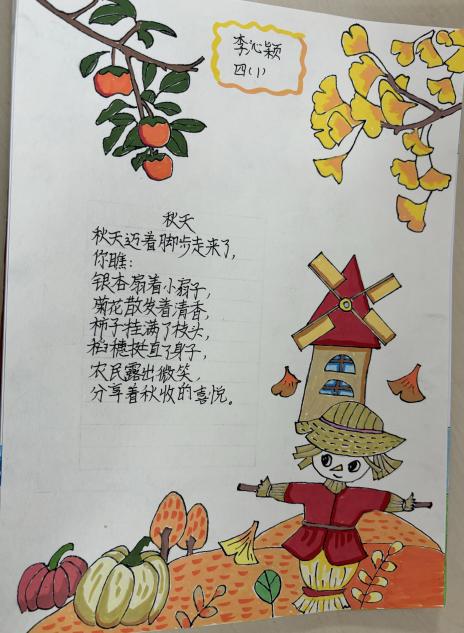 李沁颖
四(1)
秋天
秋天迈着脚步走来了,
你瞧:
银杏扇着小扇子,
菊花散发着清香,
柿子挂满了枝头,
稻穗挺直了身子,
农民露出微笑,
分享着秋收的喜悦。